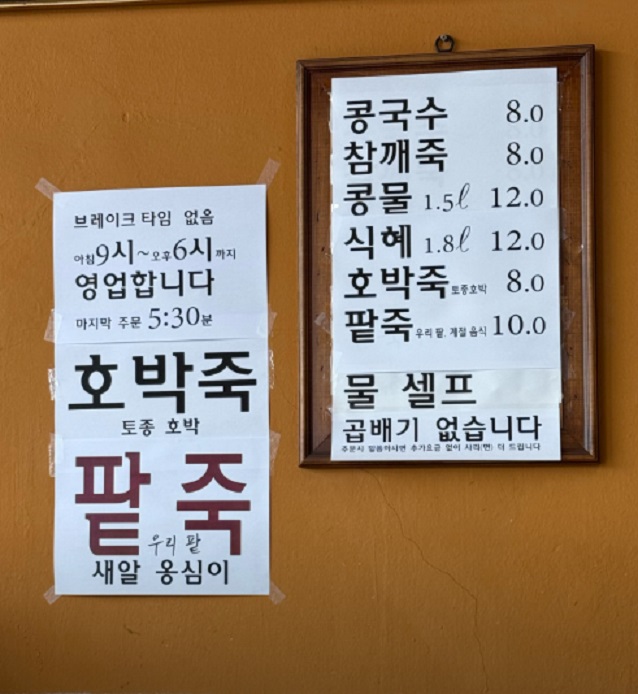 브레이크 타임 없음
아침9시~오후6시까지
영업합니다
마지막 주문 5:30분
호박죽
토종 호박
팥죽
우리 팥
새알 옹심이
콩국수 8.0
참깨죽 8.0
콩물 1.5ℓ 12.0
식혜 1.8ℓ 12.0
호박죽 토종호박 8.0
팥죽 우리 팥, 계절 음식 10.0
물 셀프
곱배기 없습니다
주문시 말씀하시면 추가요금 없이 사리(면) 더 드립니다